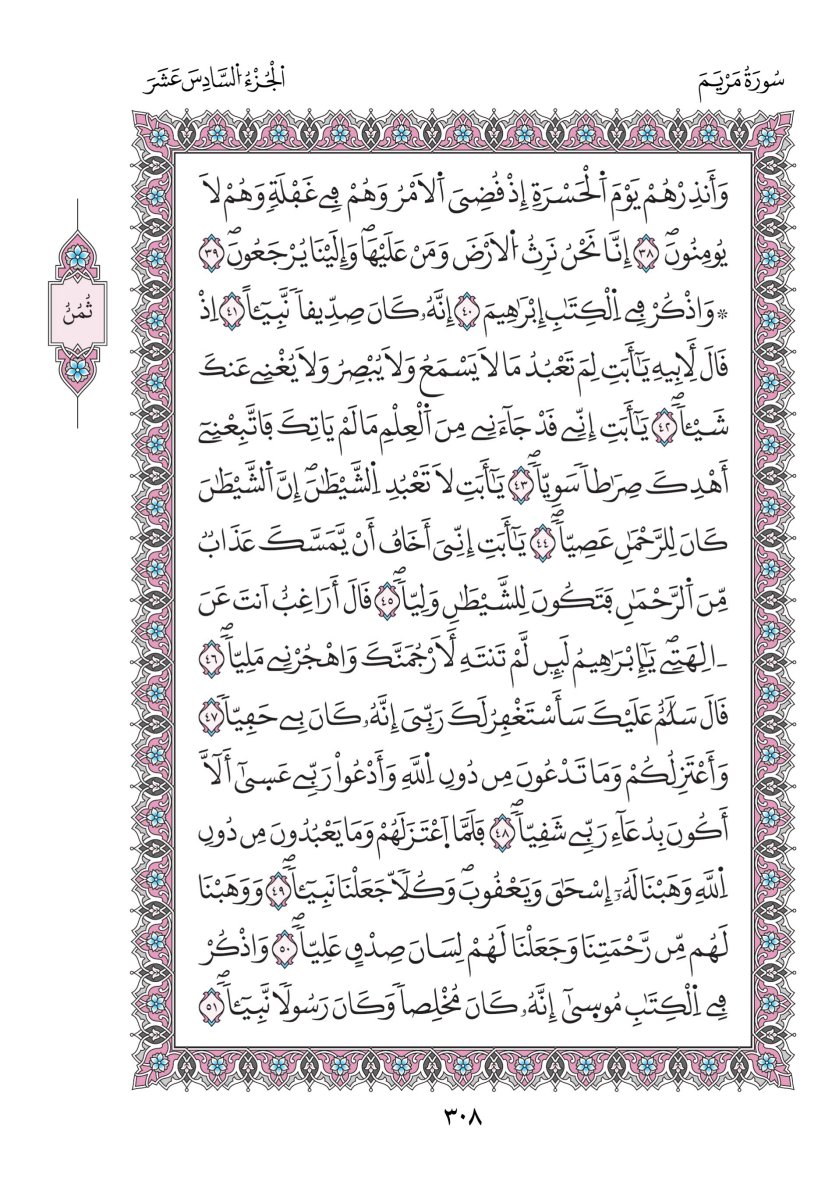 سُورَةُ مَرْيَمَ
اَلْجُزْءُ اَلسَّادِسَ عَشَرَ
وَأَنذِرْهُمْ يَوْمَ اَ۬لْحَسْرَةِ إِذْ قُضِيَ اَ۬لَامْرُ وَهُمْ فِے غَفْلَةٖ وَهُمْ لَا
يُومِنُونَۖ ٣٨ إِنَّا نَحْنُ نَرِثُ اُ۬لَارْضَ وَمَنْ عَلَيْهَاۖ وَإِلَيْنَا يُرْجَعُونَۖ ٣٩
* وَاذْكُرْ فِے اِ۬لْكِتَٰبِ إِبْرَٰهِيمَ ٤٠ إِنَّهُۥ كَانَ صِدِّيقاٗ نَّبِيٓـٔاً ٤١ إِذْ
ثُمُنُ
قَالَ لِأَبِيهِ يَٰٓأَبَتِ لِمَ تَعْبُدُ مَا لَا يَسْمَعُ وَلَا يُبْصِرُ وَلَا يُغْنِے عَنكَ
شَيْـٔاٗۖ ٤٢ يَٰٓأَبَتِ إِنِّے قَدْ جَآءَنِے مِنَ اَ۬لْعِلْمِ مَا لَمْ يَاتِكَ فَاتَّبِعْنِےٓ
أَهْدِكَ صِرَٰطاٗ سَوِيّاٗۖ ٤٣ يَٰٓأَبَتِ لَا تَعْبُدِ اِ۬لشَّيْطَٰنَۖ إِنَّ اَ۬لشَّيْطَٰنَ
كَانَ لِلرَّحْمَٰنِ عَصِيّاٗۖ ٤٤ يَٰٓأَبَتِ إِنِّيَ أَخَافُ أَنْ يَّمَسَّكَ عَذَابٞ
مِّنَ اَ۬لرَّحْمَٰنِ فَتَكُونَ لِلشَّيْطَٰنِ وَلِيّاٗۖ ٤٥ قَالَ أَرَاغِبٌ اَنتَ عَنَ
اٰلِهَتِےۖ يَٰٓإِبْرَٰهِيمُ لَئِن لَّمْ تَنتَهِ لَأَرْجُمَنَّكَ وَاهْجُرْنِے مَلِيّاٗۖ ٤٦
قَالَ سَلَٰمٌ عَلَيْكَ سَأَسْتَغْفِرُ لَكَ رَبِّيَ إِنَّهُۥ كَانَ بِے حَفِيّاٗۖ ٤٧
وَأَعْتَزِلُكُمْ وَمَا تَدْعُونَ مِن دُونِ اِ۬للَّهِ وَأَدْعُواْ رَبِّے عَسَىٰٓ أَلَّآ
أَكُونَ بِدُعَآءِ رَبِّے شَقِيّاٗۖ ٤٨ فَلَمَّا اَ۪عْتَزَلَهُمْ وَمَا يَعْبُدُونَ مِن دُونِ
اِ۬للَّهِ وَهَبْنَا لَهُۥٓ إِسْحَٰقَ وَيَعْقُوبَۖ وَكُلّاٗ جَعَلْنَا نَبِيٓـٔاٗۖ ٤٩ وَوَهَبْنَا
لَهُم مِّن رَّحْمَتِنَا وَجَعَلْنَا لَهُمْ لِسَانَ صِدْقٍ عَلِيّاٗۖ ٥٠ وَاذْكُرْ
فِے اِ۬لْكِتَٰبِ مُوسَىٰٓ إِنَّهُۥ كَانَ مُخْلِصاٗ وَكَانَ رَسُولاٗ نَّبِيٓـٔاٗۖ ٥١
٣٠٨